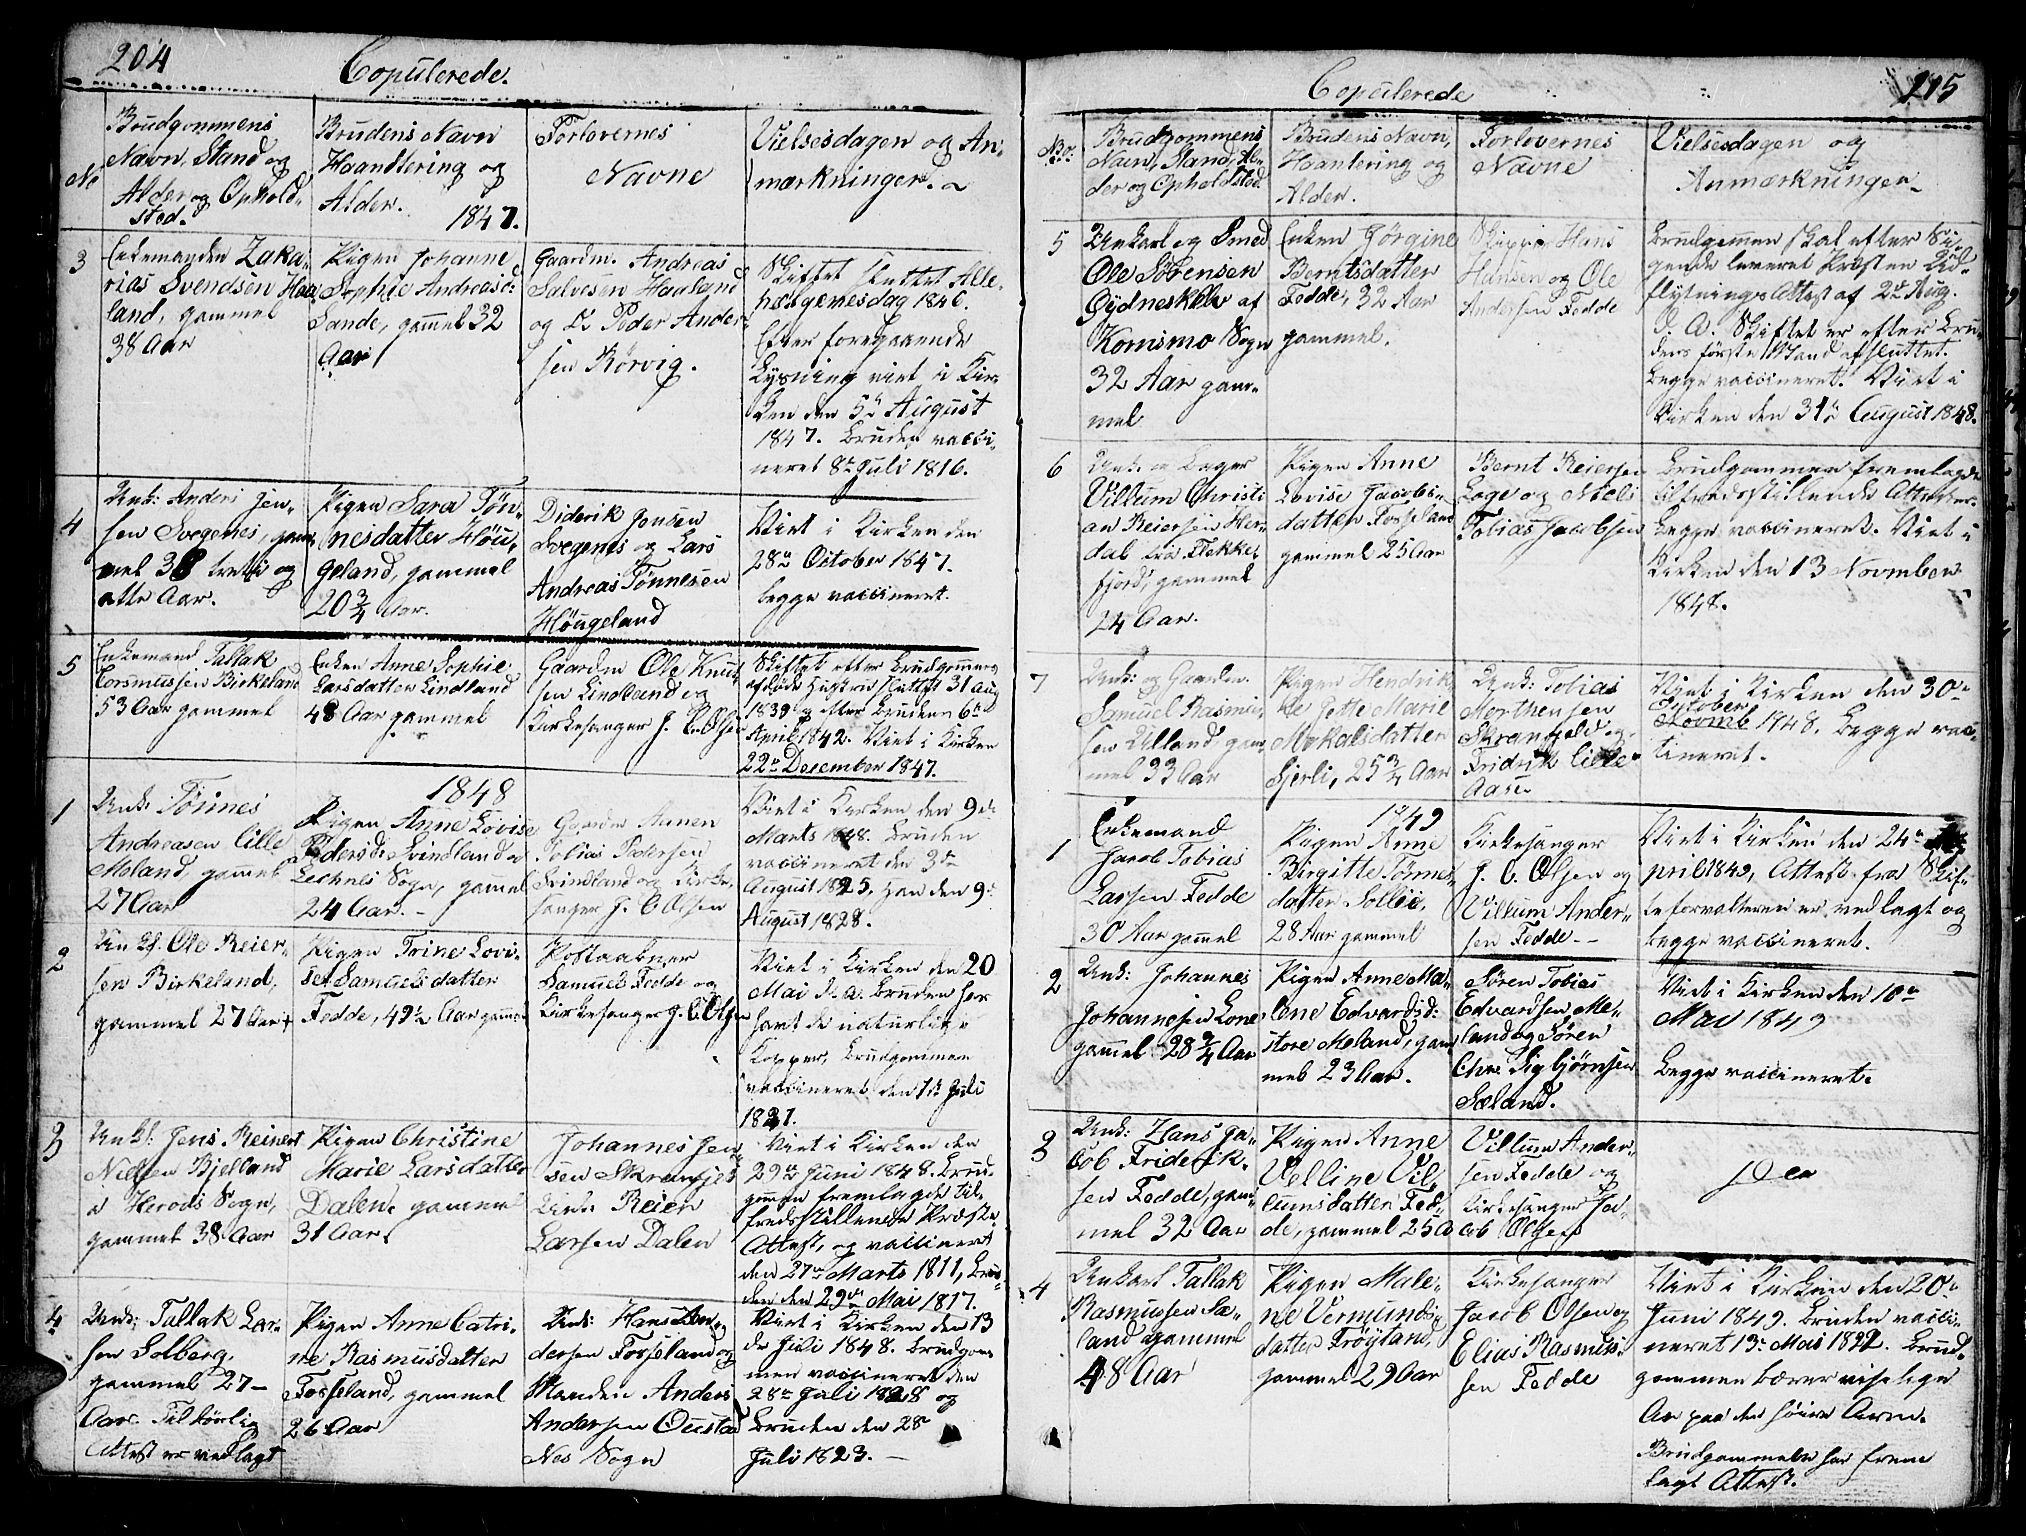 204
Copulerede.
No
Brudgommens
Navn, Stand og
Alder og Ophold-
sted.
Brudens Navn
Haandtering og
Alder. 1847.
Forlovernes
Navne
Vielsesdagen og An-
mærkninger.
3
Enkemanden Zaka-
rias Svendsen Haa-
land, gammel
38 Aar
Pigen Johanne
Sophie Andreasd:
Sande, gammel 32
Aar
Gaardm. Andreas
Salvesen Haaland
og Do Peder Ander-
sen Rørvig.
Skiftet sluttet Alle-
helgenesdag 1846.
Efter foregaaende
Lysning viet i Kir-
ken den 5te August
1847. Bruden vacci-
neret 8de Juli 1816.
4
Unk: Anders Jen-
sen Svegenes, gam-
mel 38 tretti og
otte Aar.
Pigen Sara Tøn-
nesdatter Høu-
geland, gammel
20 3/4 Aar.
Diderik Jensen
Svegenes og Lars
Andreas Tønnesen
Høugeland
Viet i Kirken den
28de October 1847.
begge vaccineret.
5
Enkemand Tallak
Torsmussen Birkeland
53 Aar gammel
Enken Anne Sophie
Larsdatter Lindland
48 Aar gammel
Gaardm Ole Knut-
sen Lindland og
Kirkesanger J. C. Olsen
Skiftet efter Brudgommens
afdøde Hustru sluttet 31 aug
1839 og efter Brudens 6te
April 1842. Viet i Kirken
22de December 1847.
1848
1
Unk: Tønnes
Andreasen Lille
Meland, gammel
27 Aar
Pigen Anne Lovise
Pedersd: Svindland a
Lechnes Sogn, gammel
24 Aar.
Gaardm Annen
Tobias Pedersen
Svindland og Kirke-
sanger J. C Olsen
Viet i Kirken den 9de
Marts 1848. Bruden
vaccineret den 3de
August 1825. Han den 9de
August 1828.
2
Unk: Ole Reier-
sen Birkeland,
gammel 27 Aar
Pigen Trine Lovi-
se Samuelsdatter
Fedde, 49 1/2 Aar gammel
Postaabner
Samuel Fedde og
Kirkesanger J. C Olsen
Viet i Kirken den 20
Mai d. a. Bruden har
havt de naturlige
Kopper, Brudgommen
vaccineret den 1ste Juli
1821.
3
Unk: Jens Reinert
Nielsen Bjelland
a Herods Sogn,
gammel 38 Aar
Pigen Christine
Marie Larsdatter
Dalen, gammel
31 Aar.
Johannes Jen-
sen Skrumfjel
Unk: Reier
Larsen Dalen
Viet i Kirken den
29de Juni 1848. Brud-
gommen fremlagde til-
fredsstillende Præste-
Attest, og vaccineret
den 27de Marts 1811, Bru-
den den 29de Mai 1817.
4
Unk: Tallak Lar-
sen Solberg,
gammel 27
Aar. Tilbørlig
Attest er vedlagt
Pigen Anne Catri-
ne Rasmusdatter
Fosseland, gammel
26 Aar
Unk: Hans An-
dersen Fosseland og
Manden Anders
Andersen Oustad
Nes Sogn
Viet i Kirken den 13
de Juli 1848. Brudgom-
men vaccineret den
28de Juli 1828 og
Bruden den 28
Juli 1823.
215
Copulerede
No.
Brudgommens
Navn, Stand, Al-
der og Opholdsted.
Brudens Navn,
Haantering og
Alder.
Forlovernes
Navne
Vielsesdagen og
Anmærkninger
5
Unkarl og Smed
Ole Sørensen
Gydneskleiv af
Kornsmo Sogn
32 Aar gam-
mel
Enken Jørgine
Berntsdatter
Fedde, 32 Aar
gammel.
Skipper Hans
Hansen og Ole
Andersen Fedde
Brudgommen skal efter Si-
gende leveret Præsten Ud-
flytnings Attest af 2de Aug.
d. A. Skiftet er efter Bru-
dens første Mand afsluttet.
Begge vaccineret. Viet i
Kirken den 31te August 1848.
6
Unk: og Bager
Villum Christi
an Reiersen Her-
dal fra Flekke-
fjord, gammel
24 Aar.
Pigen Anne
Lovise Jacobs-
datter Fosseland
gammel 25 Aar
Bernt Reiersen
Loge og Niels
Tobias Jacobsen
Brudgommen fremlagde
tilfredsstillende Attester.
Begge vaccineret. Viet i
Kirken den 13 Novmber
1848.
7
Unk: og Gaardm.
Samuel Rasmus-
sen Ulland, gam-
mel 33 Aar
Pigen Hendrik-
ke Jette Marie
Mikalsdatter
Gjerli, 25 3/4 Aar
Unk: Tobias
Morthensen
Skrumfjeld og
Fridrik Lille
Aasen
Viet i Kirken den 30te
October
Novmb 1848. Begge vac-
cineret.
1849
1
Enkemand
Jacob Tobias
Larsen Fedde
30 Aar gammel
Pigen Anne
Birgitte Tønnes-
datter Sollie,
28 Aar gammel
Kirkesanger
J. C. Olsen og
Villum Ander-
sen Fedde
Viet i Kirken den 24de A-
pril 1849, Attest fra Skif-
teforvalteren er vedlagt og
begge vaccineret.
2
Unk: Johannes
Johannesen Lone,
gammel 28 3/4 Aar
Pigen Anne Ma-
lene Edvardsd:
store Meland, gam-
mel 23 Aar.
Søren Tobias
Edvardsen Me-
land og Søren
Chr. Sigbjørnsen
Sæland.
Viet i Kirken den 10de
Mai 1849
Begge vaccineret.
3
Unk: Hans Ja-
cob Friderik-
sen Fedde, gam-
mel 32 Aar
Pigen Anne
Velline Vil-
lumsdatter Fed-
de, gammel 25 A
Villum Ander-
sen Fedde og
Kirkesanger Ja-
cob Olsen
4
Unkarl Tallak
Rasmussen Sæ-
land gammel
48 Aar
Pigen Male-
ne Vermunds-
datter Frøytland,
gammel 29 Aar
Kirkesanger
Jacob Olsen og
Elias Rasmus-
sen Fedde
Viet i Kirken den 20de
Juni 1849. Bruden vacci-
neret 13de Mai 1822. Brud-
gommen bærer viselige
Ar paa den høire Arm.
Brudgommen har frem
lagt Attest.